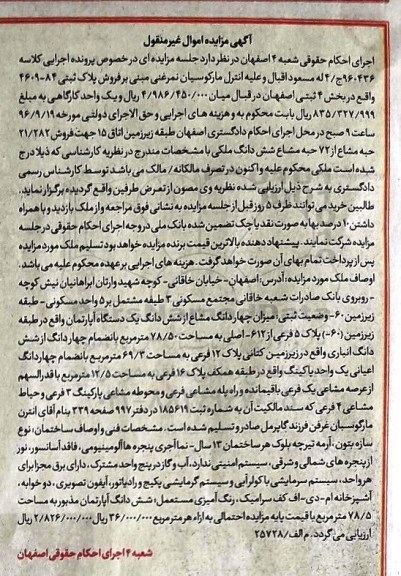 آگهی مزایده اموال غیرمنقول
اجرای احکام حقوقی شعبه ۴ اصفهان در نظر دارد جلسه مزایده ای در خصوص پرونده اجرایی کلاسه
۹۶۰۴۳۶ج/۴ له مسعود اقبال و علیه انترل مارکوسیان نمرغنی مبنی بر فروش پلاک ثبتی ۸۴-۴۶۰۹
واقع در بخش ۴ ثبتی اصفهان در قبال میان ۴/۹۸۶/۴۵۰/۰۰۰ ریال و یک واحد کارگاهی به مبلغ
۸۳۵/۳۲۷/۹۹۹ ریال بابت محکوم به و هزینه های اجرایی و حق الاجرای دولتی مورخه ۹۶/۹/۱۹
ساعت ۹ صبح در محل اجرای احکام دادگستری اصفهان طبقه زیرزمین اتاق ۱۵ جهت فروش ۲۱/۲۸۲
حبه مشاع از ۷۲ حبه مشاع شش دانگ ملکی با مشخصات مندرج در نظریه کارشناسی که ذیلا درج
شده است ملکی محکوم علیه و اکنون در تصرف مالکانه / مالک می باشد توسط کارشناس رسمی
دادگستری به شرح ذیل ارزیابی شده نظریه وی مصون از تعرض طرفین واقع گردیده برگزار نماید.
طالبین خرید می توانند ظرف ۵ روز قبل از جلسه مزایده به نشانی فوق مراجعه و از ملک بازدید و با همراه
داشتن ۱۰ درصد بها به صورت نقد یا چک تضمین شده بانک ملی در وجه اجرای احکام حقوقی در جلسه
مزایده شرکت نمایند. پیشنهاد دهنده بالاترین قیمت برنده مزایده خواهد بود تسلیم ملک مورد مزایده
پس از پرداخت تمام بهای آن صورت خواهد گرفت. هزینه های اجرایی بر عهده محکوم علیه می باشد.
اوصاف ملک مورد مزایده: آدرس: اصفهان - خیابان خاقانی - کوچه شهید وارتان ابراهانیان نبش کوچه
- روبروی بانک صادرات شعبه خاقانی مجتمع مسکونی ۳ طبقه مشتمل بر ۵ واحد مسکونی - طبقه
زیرزمین ۶۰- وضعیت ثبتی: میزان چهار دانگ مشاع از شش دانگ یک دستگاه آپارتمان واقع در طبقه
زیرزمین (۶۰-) پلاک ۵ فرعی از ۶۱۲- اصلی به مساحت ۷۸/۵۰ مترمربع بانضمام چهار دانگ از شش
دانگ انباری واقع در زیرزمین کتائی پلاک ۱۲ فرعی به مساحت ۶۹/۳ مترمربع بانضمام چهار دانگ
اعیانی یک واحد پارکینگ واقع در طبقه همکف پلاک ۱۶ فرعی به مساحت ۱۲/۵ مترمربع با قدرالسهم
از عرصه مشاعی یک فرعی باقیمانده و راه پله مشاعی فرعی و محوطه مشاعی پارکینگ ۳ فرعی و حیاط
مشاعی ۴ فرعی که سند مالکیت آن به شماره ثبت ۱۸۵۶۱۹ در دفتر ۹۹۷ صفحه ۳۳۹ بنام آقای انترن
مارکوسیان غرفن فرزند گاپرمل صادر و تسلیم شده است. مشخصات فنی و اوصاف ساختمان: نوع
سازه بتون، آرمه تیرچه بلوک هر ساختمان ۱۳ سال - نما آجری پنجره ها آلومینیومی، فاقد آسانسور، نور
از پنجره های شمالی و شرقی، سیستم امنیتی ندارد، آب و گاز در پنج واحد مشترک، دارای برق مجزا برای
هر واحد، سیستم سرمایشی با کولر آبی و سیستم گرمایشی پکیج و رادیاتور، آیفون تصویری، دو خوابه،
آشپزخانه ام-دی-اف کف سرامیک، رنگ آمیزی مستعمل؛ شش دانگ آپارتمان مذبور به مساحت
۷۸/۵ مترمربع با قیمت پایه مزایده احتمالی به ازاء هر مترمربع ۳۶/۰۰۰/۰۰۰ ریال ۲/۸۲۶/۰۰۰/۰۰۰ ریال
ارزیابی می گردد. م الف/۲۵۷۲۸
شعبه ۴ اجرای احکام حقوقی اصفهان